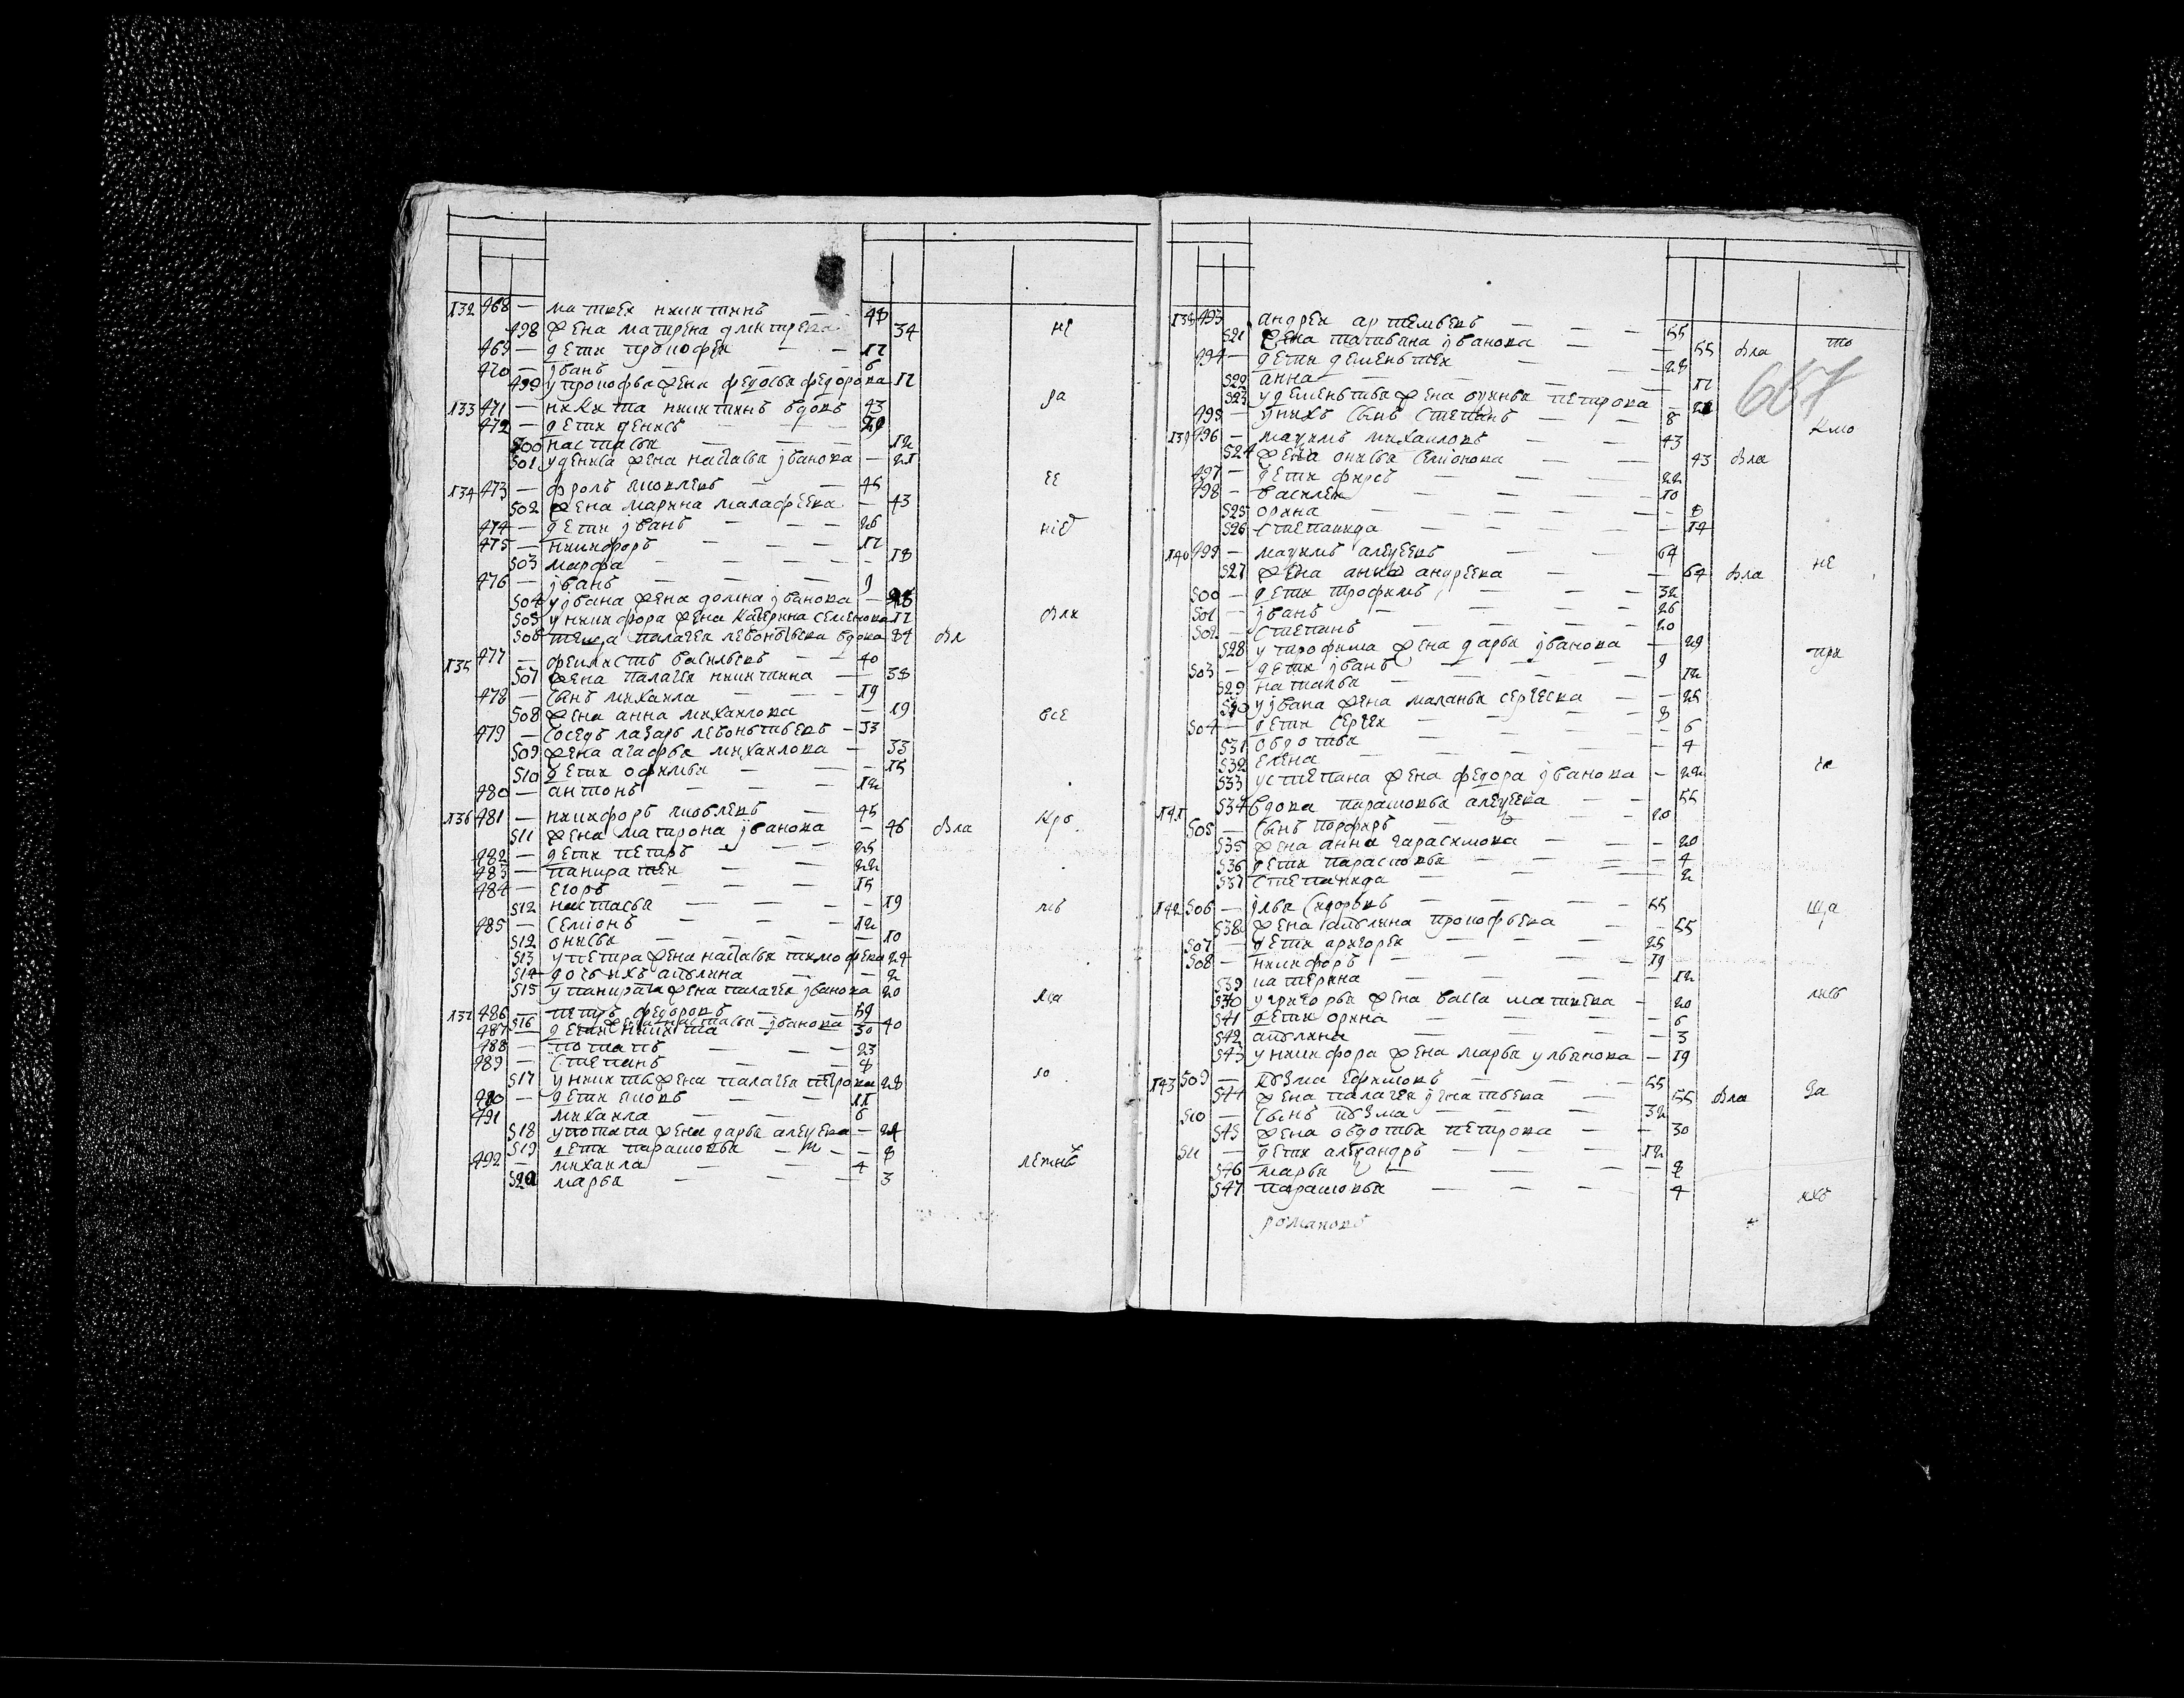 132 468 — матвеи никитинъ 48
498 жена матрена дмитрева 34 не
469 — дети прокофеи — — 17
470 — јванъ — — 6
499 у прокофьа жена федосьа федорова 17
133 471 — никита никитинъ вдовъ 43 ра
472 — дети денисъ — — 29
500 настасьа — — — 12
501 у дениса жена настасьа јванова — 21
134 473 — фролъ яковлевъ — 45 се
502 жена марина малафеева — 43
474 — дети јванъ — — — 26 ніе
475 — никифоръ — — — 17
503 марфа — — — — 18
476 — јванъ — — — 9
504 у јвана жена домна јванова — 18
505 у никифора жена катерина семенова 17 вли
506 теща палагеа левонтьева вдова 84 вл
135 477 — феклистъ васильевъ — — 40
507 жена палагеа никитина — 38
478 — сынъ михаила — — 19
508 жена анна михаилова — 19 все
479 — соседъ лазарь левонтьевъ — 33
509 жена агафьа михаилова — 33
510 дети офимьа — — — 15
480 — антонъ — — — 12
136 481 — никифоръ яковлевъ — 45
511 жена матрона јванова — 46 вла кро
482 — дети петръ — — — 25
483 — панкратеи — — — 22
484 — егоръ — — — 15
512 настасьа — — — — 19 ль
485 — семіонъ — — — 12
512 онисьа — — — — 10
513 у петра жена настасьа тимофеева 24
514 дочь ихъ акулина — — 2
515 у панкрата жена палагеа јванова 20
137 486 — петръ федоровъ — — 59 ща
516 жена настасьа јванова — 40
487 — дети никита — 30
488 — потапъ — — — 23
489 — степанъ — — — 8
517 у никиты жена палагеа петрова 28 ло
490 — дети яковъ — — — 11
491 михаила — — — 6
518 у потапа жена дарьа алеѯеева — 24
519 дети парасковьа — — — 8
492 — михаила — — 4 летнь
520 марьа — — — 3
138 493 андреи артемьевъ — — — 55
521 жена татьаna јванова — — 55 вла то
494 — дети дементеи — — 28
522 анна — — — — 17
523 у дементьа жена аѯиньа петрова — 21
495 — у нихъ сынъ степанъ — — 8
667
139 496 — маѯимъ михаиловъ — — 43 кмо
524 жена онисьа семіонова — — 43 вла
497 — дети фирсъ — — — 22
498 — василеи — — — — 10
525 орина — — — — 8
526 степанида — — — — 14
140 499 — маѯимъ алеѯеевъ — — 64
527 жена анна андреева — — 64 вла не
500 — дети трофимъ — — — 32
501 — јванъ — — — — 26
502 — степанъ — — — 20
528 у трофима жена дарьа јванова — 29
503 — дети јванъ — — — 9 при
529 наталья — — — — 12
530 у јвана жена маланьа сергеева — — 25
504 — дети сергеи — — — 8
531 овдотьа — — — — 6
532 елена — — — — 4
533 у степана жена федора јванова — 22 си
141 534 вдова парасковьа алеѯеева — — 55
505 — сынъ порфиръ — — — 20
535 жена анна гарасимова — — 20
536 дети парасковьа — — — 4
537 степанида — — — 2
142 506 — јльа сидоровъ — — — 55 ща
538 жена акулина прокофьева — 55
507 — дети григореи — — — 25
508 — никифоръ — — — 19
539 катерина — — — — 12
540 у григорьа жена васса матвеева — 20
541 дети орина — — — 6
542 акулина — — — — 3
543 у никифора жена марьа ульанова — 19
143 509 — кузма ефимовъ — — — 55
544 жена палагеа јгнатьева — — 55 вла за
510 — сынъ кузма — — — 32
545 жена овдотьа петрова — — 30
511 — дети алеѯандръ — — — 12
546 марьа — — — — 8
547 парасковьа — — — — 4
ихъ
романовъ